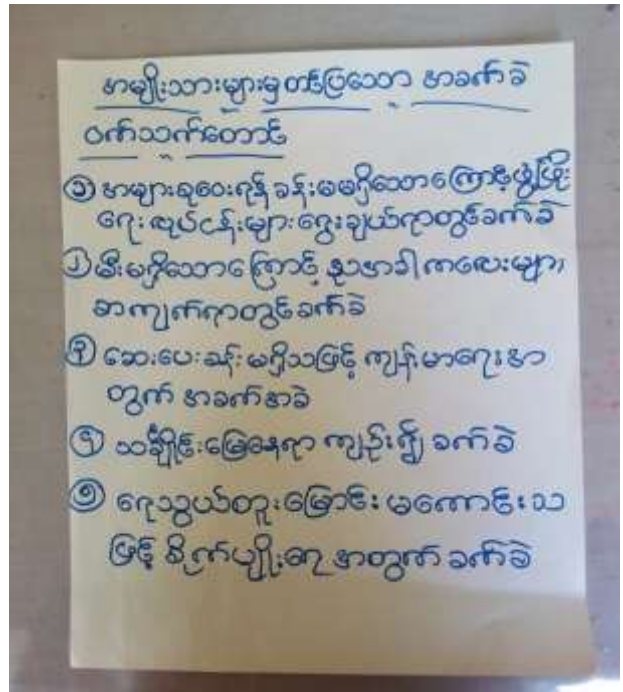 အမျိုးသားများမှတင်ပြသော အခက်ခဲ
ဝက်သက်တောင်
၁ အများစုဝေးရန် ခန်းမမရှိသောကြောင့်ဖွံ့ဖြိုး
ရေးလုပ်ငန်းများရွေးချယ်ရာတွင်ခက်ခဲ
၂ မီးမရှိသောကြောင့် နွယအခါ ကလေးများ
စာကျက်ရာတွင်ခက်ခဲ
၃ ဆေးပေးခန်းမရှိသဖြင့် ကျန်းမာရေးအာ
တွက် အခက်အခဲ
၄ သင်္ချိုင်းမြေနေရာ ကျဉ်း၍ ခက်ခဲ
၅ ရေသွယ်တူးမြောင်း မကောင်းသ
ဖြင့် စိုက်ပျိုးရေ အတွက် ခက်ခဲ